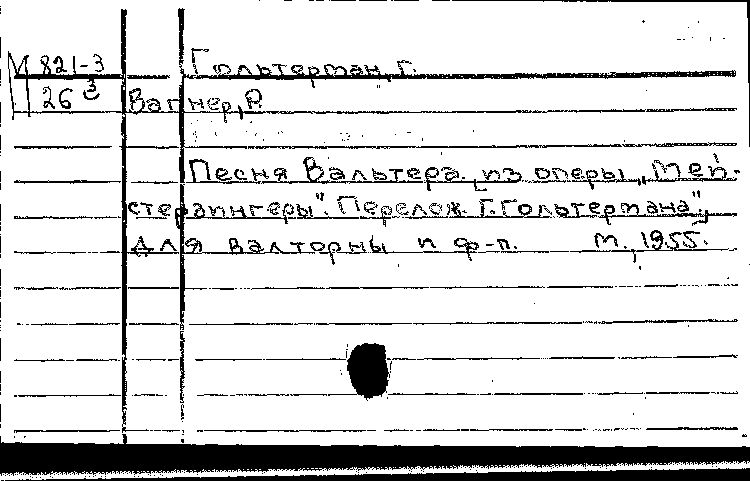 М 821-3 Гольтерман, Г.
26 3 Вагнер, Р.
Песня Вальтера. [из оперы „Мей-
стерзингеры". Перелож. Г. Гольтермана",
для валторны и ф-п. М., 1955.